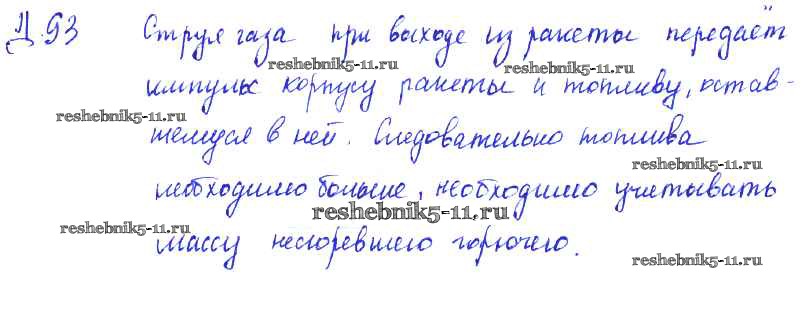 Д.93 Струя газа при выходе из ракеты передаёт
reshebnik5-11.ru reshebnik5-11.ru
импульс корпусу ракеты и топливу, остав-
reshebnik5-11.ru
шемуся в ней. Следовательно топлива
reshebnik5-11.ru
необходимо больше, необходимо учитывать
reshebnik5-11.ru
reshebnik5-11.ru
массу несгоревшего горючего.
reshebnik5-11.ru